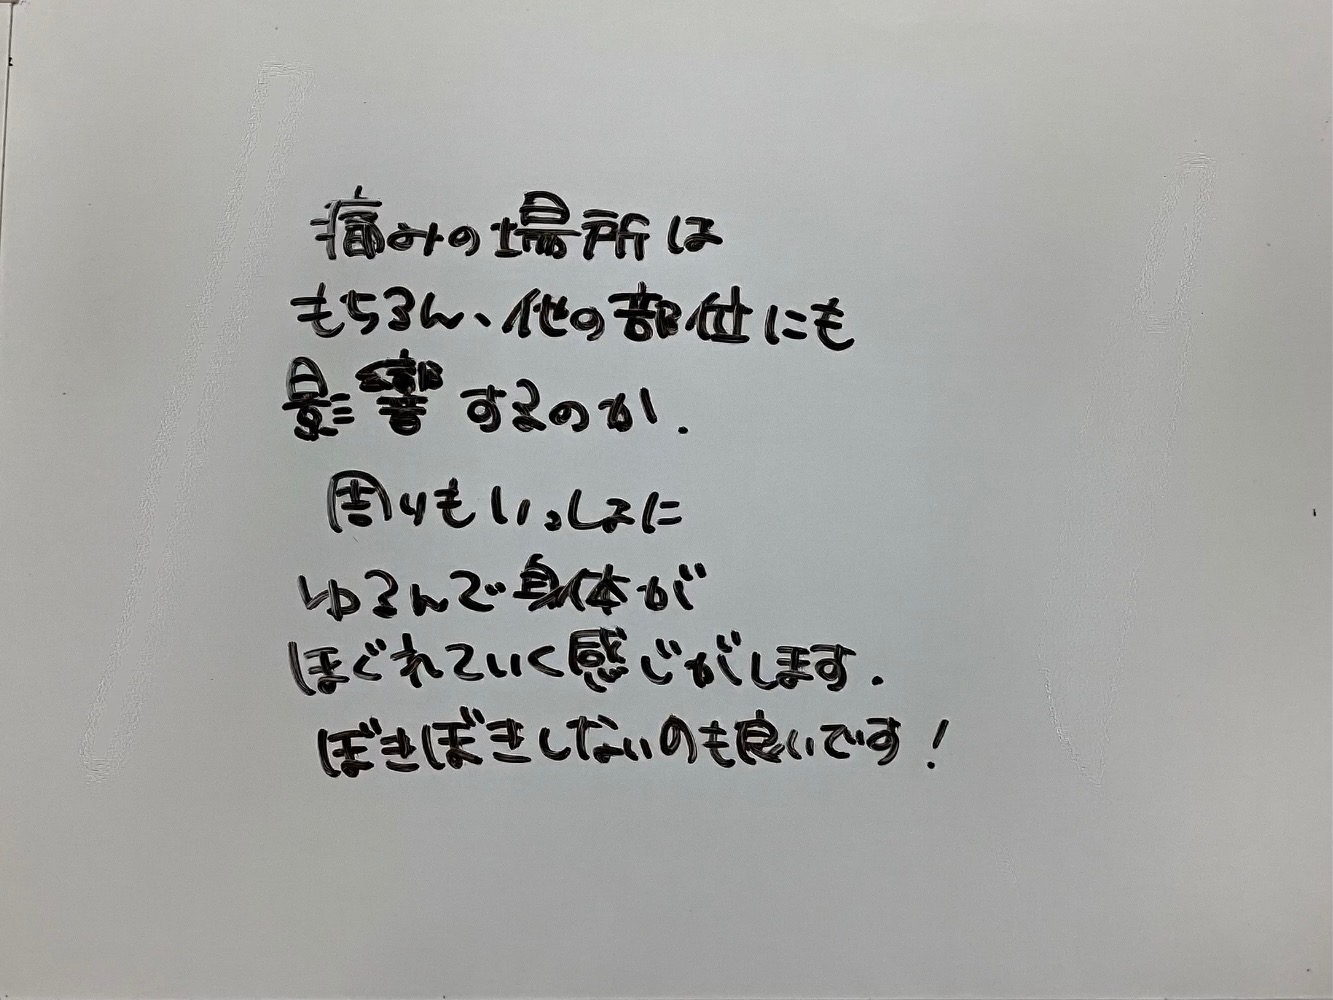 痛みの場所は
もちろん、他の部位にも
影響するのか.
周りもいっしょに
ゆるんで身体が
ほぐれていく感じがします.
ぼきぼきしないのも良いです!